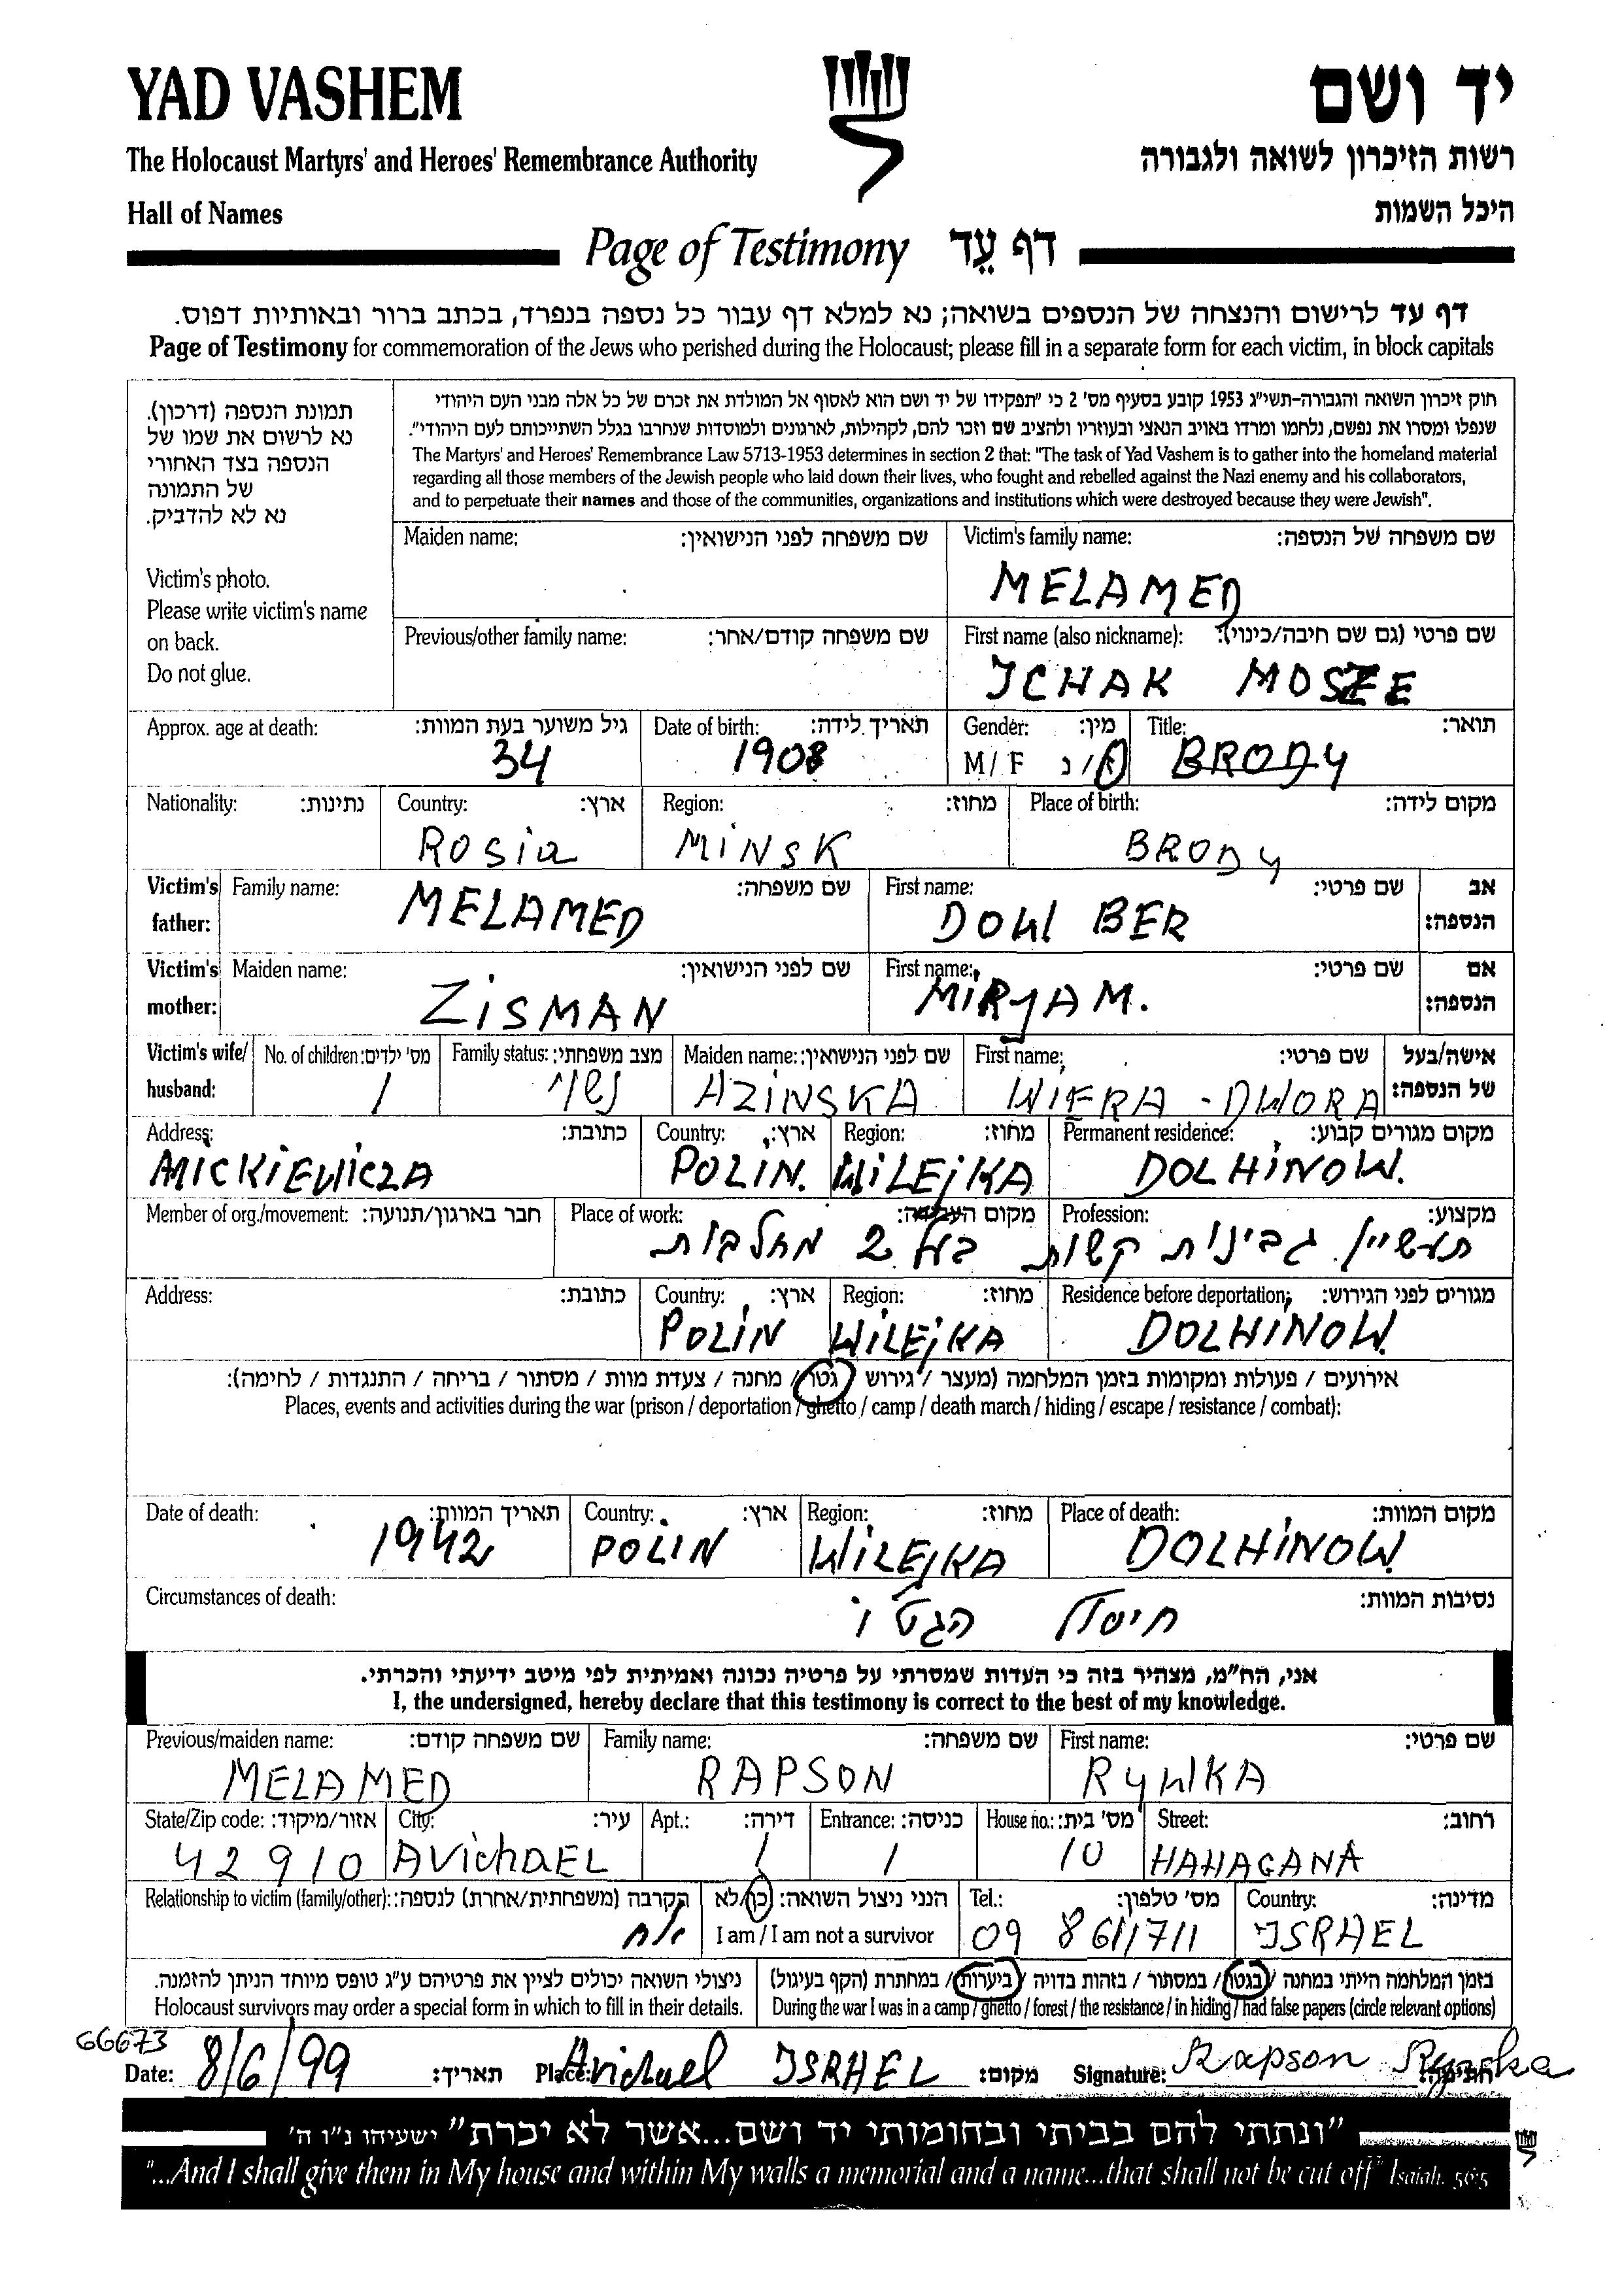 YAD VASHEM
יד ושם
The Holocaust Martyrs' and Heroes' Remembrance Authority
רשות הזיכרון לשואה ולגבורה
Hall of Names
היכל השמות
Page of Testimony דף עֵד
דף עד לרישום והנצחה של הנספים בשואה; נא למלא דף עבור כל נספה בנפרד, בכתב ברור ובאותיות דפוס.
Page of Testimony for commemoration of the Jews who perished during the Holocaust; please fill in a separate form for each victim, in block capitals
תמונת הנספה (דרכון).
נא לרשום את שמו של
הנספה בצד האחורי
של התמונה
נא לא להדביק.
Victim's photo.
Please write victim's name
on back.
Do not glue.
חוק זיכרון השואה והגבורה-תשי"ג 1953 קובע בסעיף מס' 2 כי "תפקידו של יד ושם הוא לאסוף אל המולדת את זכרם של כל אלה מבני העם היהודי
שנפלו ומסרו את נפשם, נלחמו ומרדו באויב הנאצי ובעוזריו ולהציב שם וזכר להם, לקהילות, לארגונים ולמוסדות שנחרבו בגלל השתייכותם לעם היהודי".
The Martyrs' and Heroes' Remembrance Law 5713-1953 determines in section 2 that: "The task of Yad Vashem is to gather into the homeland material
regarding all those members of the Jewish people who laid down their lives, who fought and rebelled against the Nazi enemy and his collaborators,
and to perpetuate their names and those of the communities, organizations and institutions which were destroyed because they were Jewish".
Maiden name: שם משפחה לפני הנישואין:
Victim's family name: שם משפחה של הנספה:
MELAMED
Previous/other family name: שם משפחה קודם/אחר:
First name (also nickname): שם פרטי (גם שם חיבה/כינוי):
ICHAK MOSZE
Approx. age at death: גיל משוער בעת המוות: Date of birth: תאריך לידה: Gender: מין: Title: תואר:
34 1908 M/ F ז/נ BRODY
Nationality: נתינות: Country: ארץ: Region: מחוז: Place of birth: מקום לידה:
Rosia MINSK BRODY
Victim's father: Family name: שם משפחה: First name: שם פרטי: אב הנספה:
MELAMED DOW BER
Victim's mother: Maiden name: שם לפני הנישואין: First name: שם פרטי: אם הנספה:
ZISMAN MIRYAM.
Victim's wife/ husband: No. of children: מס' ילדים: Family status: מצב משפחתי: Maiden name: שם לפני הנישואין: First name: שם פרטי: אישה/בעל של הנספה:
1 נשוי AZINSKA WIERA - DWORA
Address: כתובת: Country: ארץ: Region: מחוז: Permanent residence: מקום מגורים קבוע:
MICKIEWICZA POLIN. WILEJKA DOLHINOW.
Member of org./movement: חבר בארגון/תנועה: Place of work: מקום העבודה: Profession: מקצוע:
תעשיין גבינות קשות בעל 2 מחלבות
Address: כתובת: Country: ארץ: Region: מחוז: Residence before deportation: מגורים לפני הגירוש:
POLIN WILEJKA DOLHINOW.
אירועים / פעולות ומקומות בזמן המלחמה (מעצר / גירוש / גטו / מחנה / צעדת מוות / מסתור / בריחה / התנגדות / לחימה):
Places, events and activities during the war (prison / deportation / ghetto / camp / death march / hiding / escape / resistance / combat):
Date of death: תאריך המוות: Country: ארץ: Region: מחוז: Place of death: מקום המוות:
1942 POLIN WILEJKA DOLHINOW.
Circumstances of death: נסיבות המוות:
חיסול הגטו
אני, הח"מ, מצהיר בזה כי העדות שמסרתי על פרטיה נכונה ואמיתית לפי מיטב ידיעתי והכרתי.
I, the undersigned, hereby declare that this testimony is correct to the best of my knowledge.
Previous/maiden name: שם משפחה קודם: Family name: שם משפחה: First name: שם פרטי:
MELAMED RAPSON RYWKA
State/Zip code: אזור/מיקוד: City: עיר: Apt.: דירה: Entrance: כניסה: House no.: מס' בית: Street: רחוב:
42910 AVichaEL 1 1 10 HAHAGANA
Relationship to victim (family/other): הקרבה (משפחתית/אחרת) לנספה: הנני ניצול השואה: כן/לא Tel.: מס' טלפון: Country: מדינה:
אח I am / I am not a survivor 09 8611711 ISRAEL
ניצולי השואה יכולים לציין את פרטיהם ע"ג טופס מיוחד הניתן להזמנה.
Holocaust survivors may order a special form in which to fill in their details.
בזמן המלחמה הייתי במחנה / בגטו / במסתור / בזהות בדויה / ביערות / במחתרת (הקף בעיגול)
During the war I was in a camp / ghetto / forest / the resistance / in hiding / had false papers (circle relevant options)
66673
Date: 8/6/99 תאריך: Place: Avichael ISRAEL מקום: Signature: Rapson Rywka חתימה:
"ונתתי להם בביתי ובחומותי יד ושם...אשר לא יכרת" ישעיהו נ"ו ה'
"...And I shall give them in My house and within My walls a memorial and a name...that shall not be cut off" Isaiah. 56:5